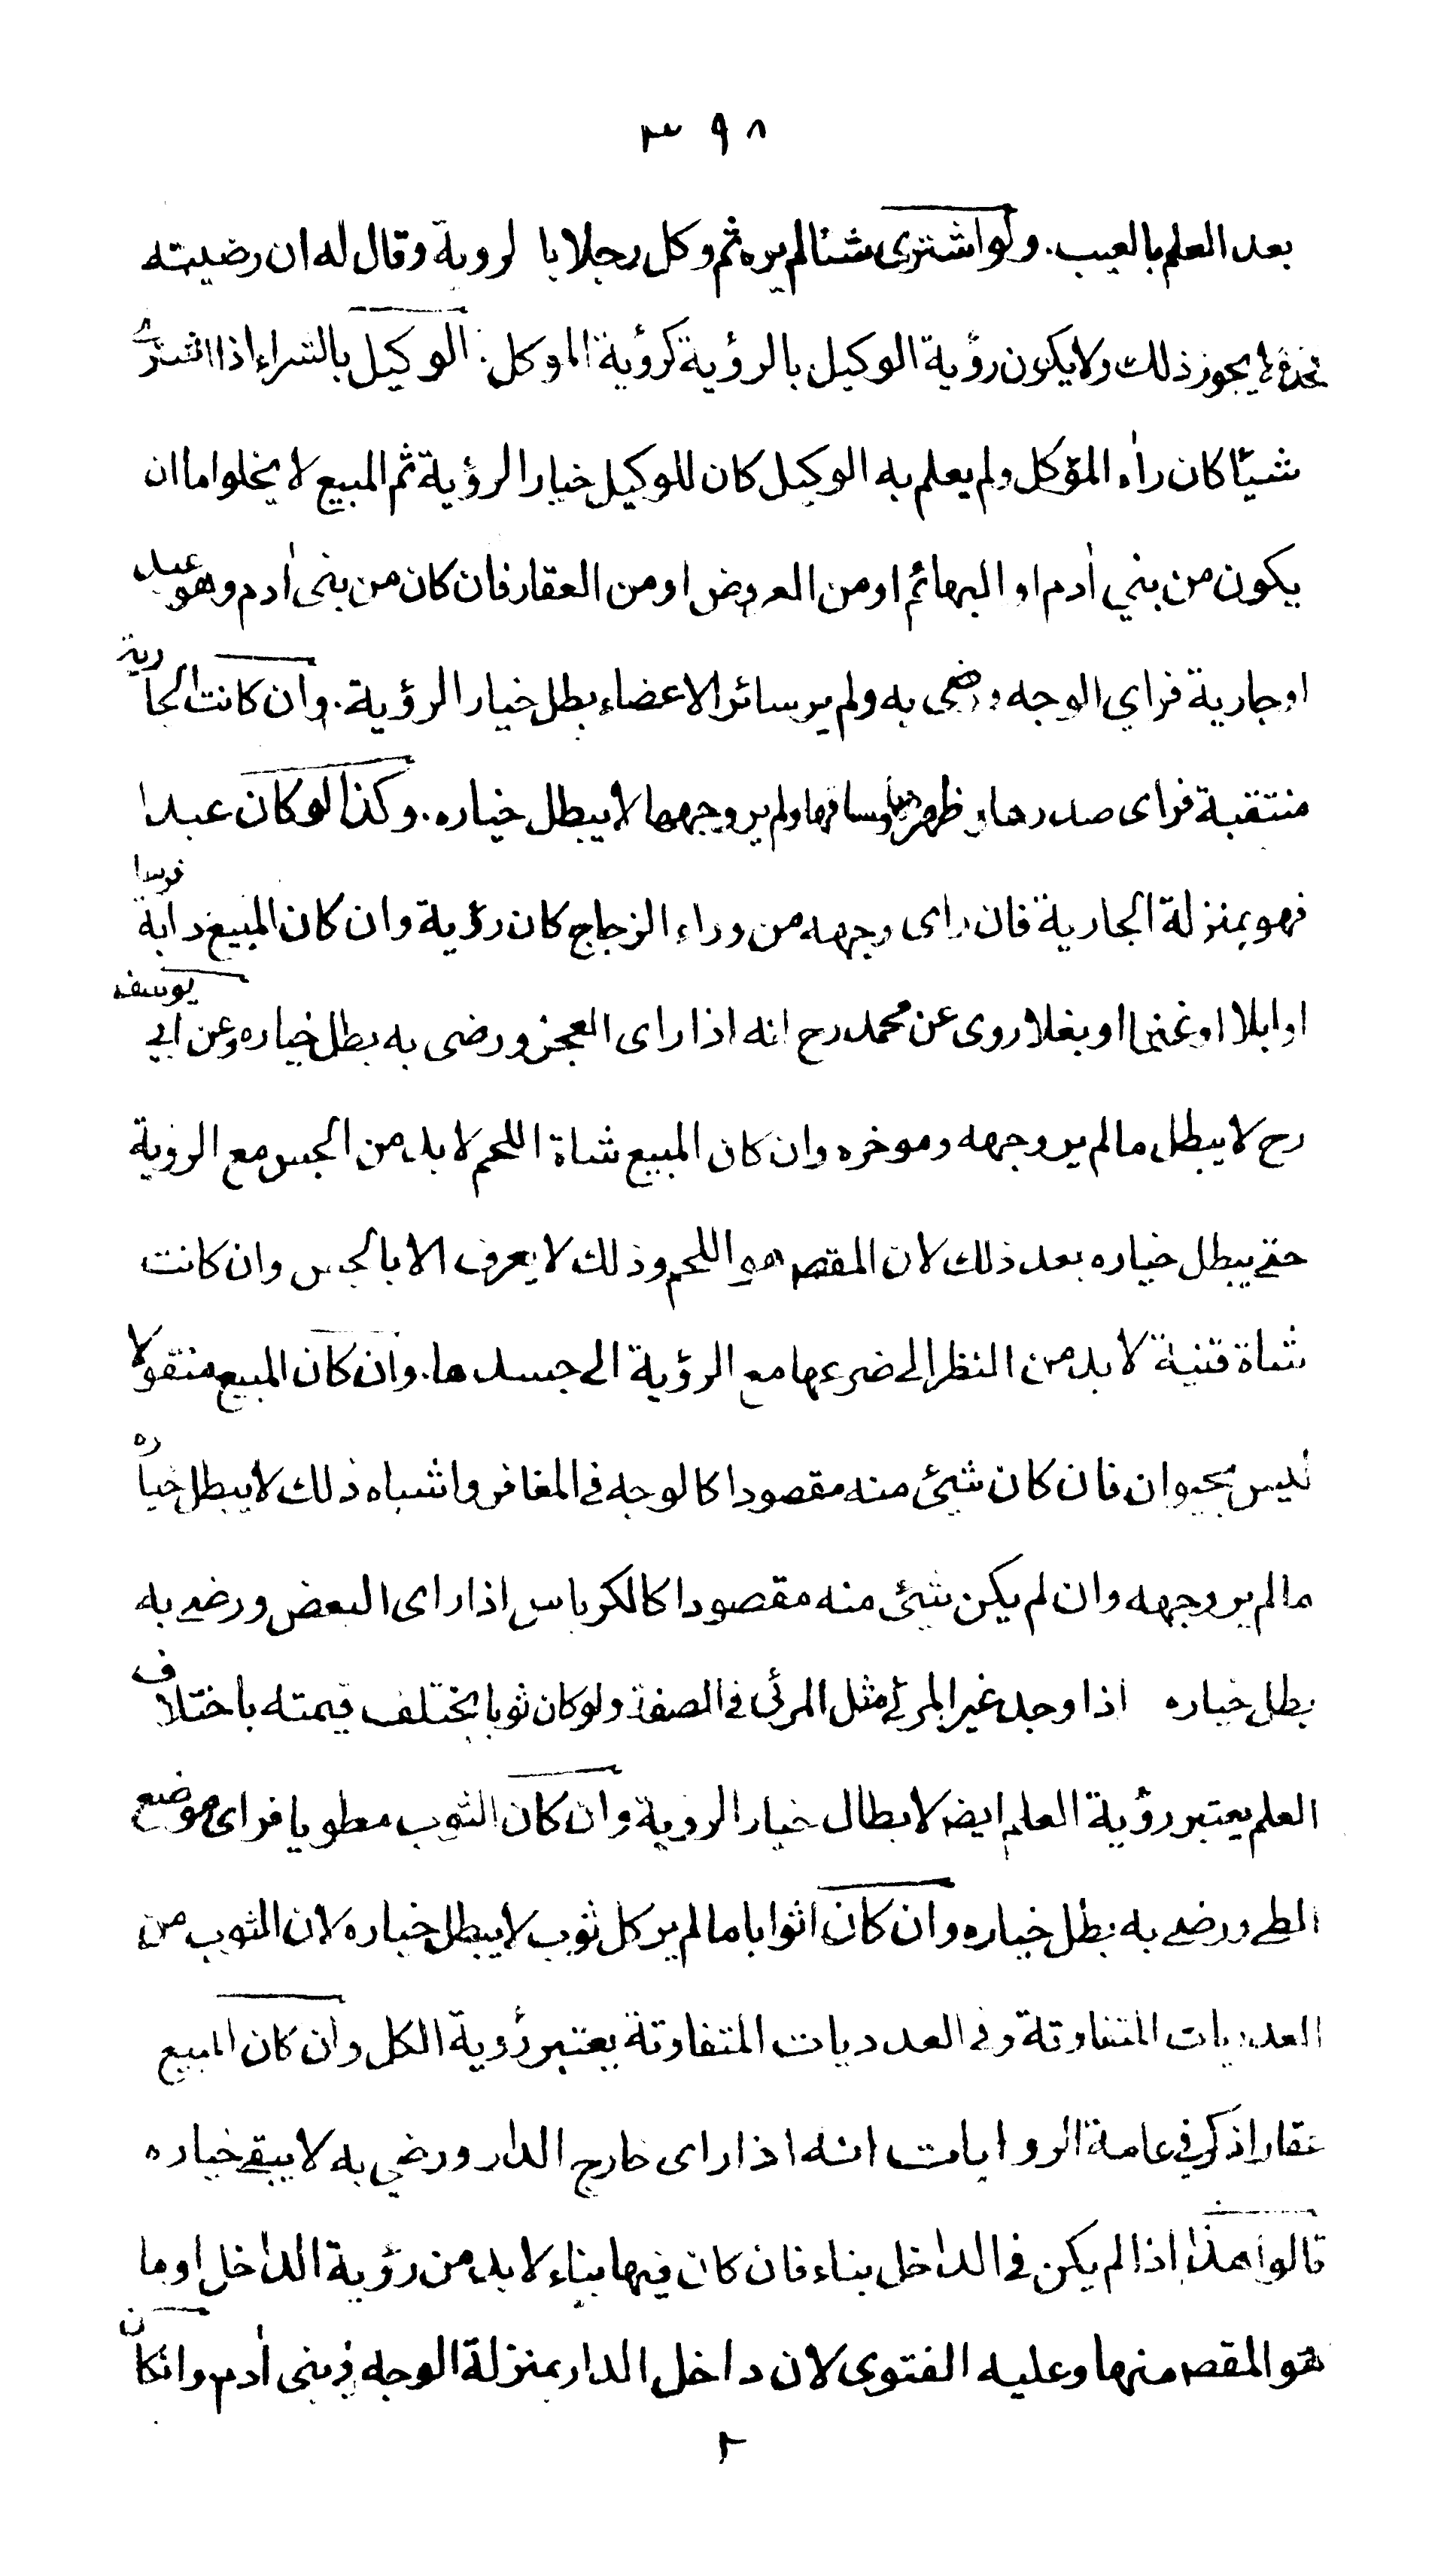 ٣٩٨
بعد العلم بالعيب. ولو اشترى شئا لم يره ثم وكل رجلا با لروية وقال له ان رضيته
فخذه لا يجوز ذلك ولا يكون رؤية الوكيل بالرؤية كرؤية الموكل. الوكيل بالشراء اذا اشترى
شيئا كان راٰه المؤكل ولم يعلم به الوكيل كان للوكيل خيار الرؤية ثم المبيع لا يخلوا ما ان
يكون من بني اٰدم او البهائم او من العروض او من العقار فان كان من بنى اٰدم وهو عبد
او جارية فراي الوجه ورضى به ولم ير سائر الاعضاء بطل خيار الرؤية. وان كانت الجارية
منتقبة فراى صدرها وظهرها وساقها ولم ير وجهها لا يبطل خياره. وكذا لو كان عبدا
فهو بمنزلة الجارية فان راى وجهه من وراء الزجاج كان رؤية وان كان المبيع دابة فرسا
او ابلا او غنما او بغلا روى عن محمد رح انه اذا راى العجز ورضى به بطل خياره وعن ابي يوسف
رح لا يبطل ما لم ير وجهه وموخره وان كان المبيع شاة اللحم لا بد من الجس مع الروية
حتى يبطل خياره بعد ذلك لان المقصـ هو اللحم وذلك لا يعرف الا بالجس وان كانت
شاة قنية لا بد من النظر الى ضرعها مع الرؤية الى جسدها. وان كان المبيع منقولا
ليس بحيوان فان كان شيئ منه مقصودا كالوجه في المغافر واشباه ذلك لا يبطل خياره
ما لم ير وجهه وان لم يكن شيئ منه مقصودا كالكرباس اذا راى البعض ورضى به
بطل خياره اذا وجد غير المرئي مثل المرئى في الصفة ولو كان ثوبا يختلف قيمته باختلاف
العلم يعتبر رؤية العلم ايضـ لابطال خيار الروية وان كان الثوب مطويا فراى موضع
الطى ورضى به بطل خياره وان كان اثوابا ما لم ير كل ثوب لا يبطل خياره لان الثوب من
العدديات المتفاوتة وفي العدديات المتفاوتة يعتبر رؤية الكل وان كان المبيع
عقارا ذكر في عامة الروايات انه اذا راى خارج الدار ورضي به لا يبقى خياره
قالوا هذا اذا لم يكن في الداخل بناء فان كان فيها بناء لا بد من رؤية الداخل او ما
هو المقصـ منها وعليه الفتوى لان داخل الدار بمنزلة الوجه في بنى اٰدم وانكان
٢